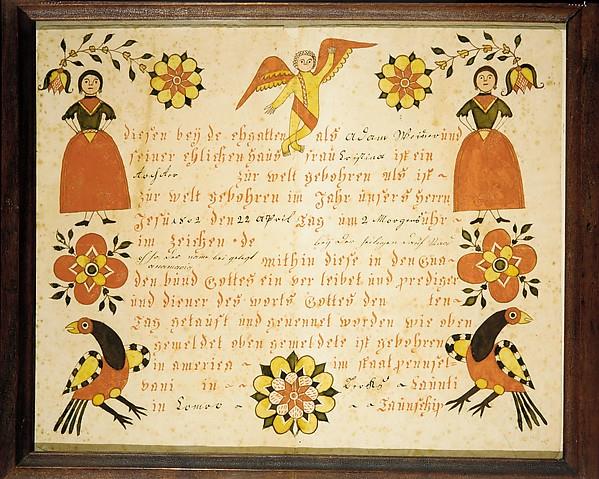 diesen bey de ehgatten als Adam Weiser und
seiner ehlichen haus frau Cristina ist ein
Tochter zur welt gebohren als ist
zür welt gebohren im Jahr ünsers herrn
Jesü 1802 den 22 April Tag um 2 Morgens uhr
im zeichen de bey der heiligen Tauf
ist ihr der name bei gelegt
anamaria mithin diese in den Gna
den bünd Gottes ein ver leibet und prediger
und diener des worts Gottes den ten
Tag getaüft und genennet worden wie oben
gemeldet oben gemeldete ist gebohren
in america im staat pennsel
vani in Berks Caünti
in Taünschip